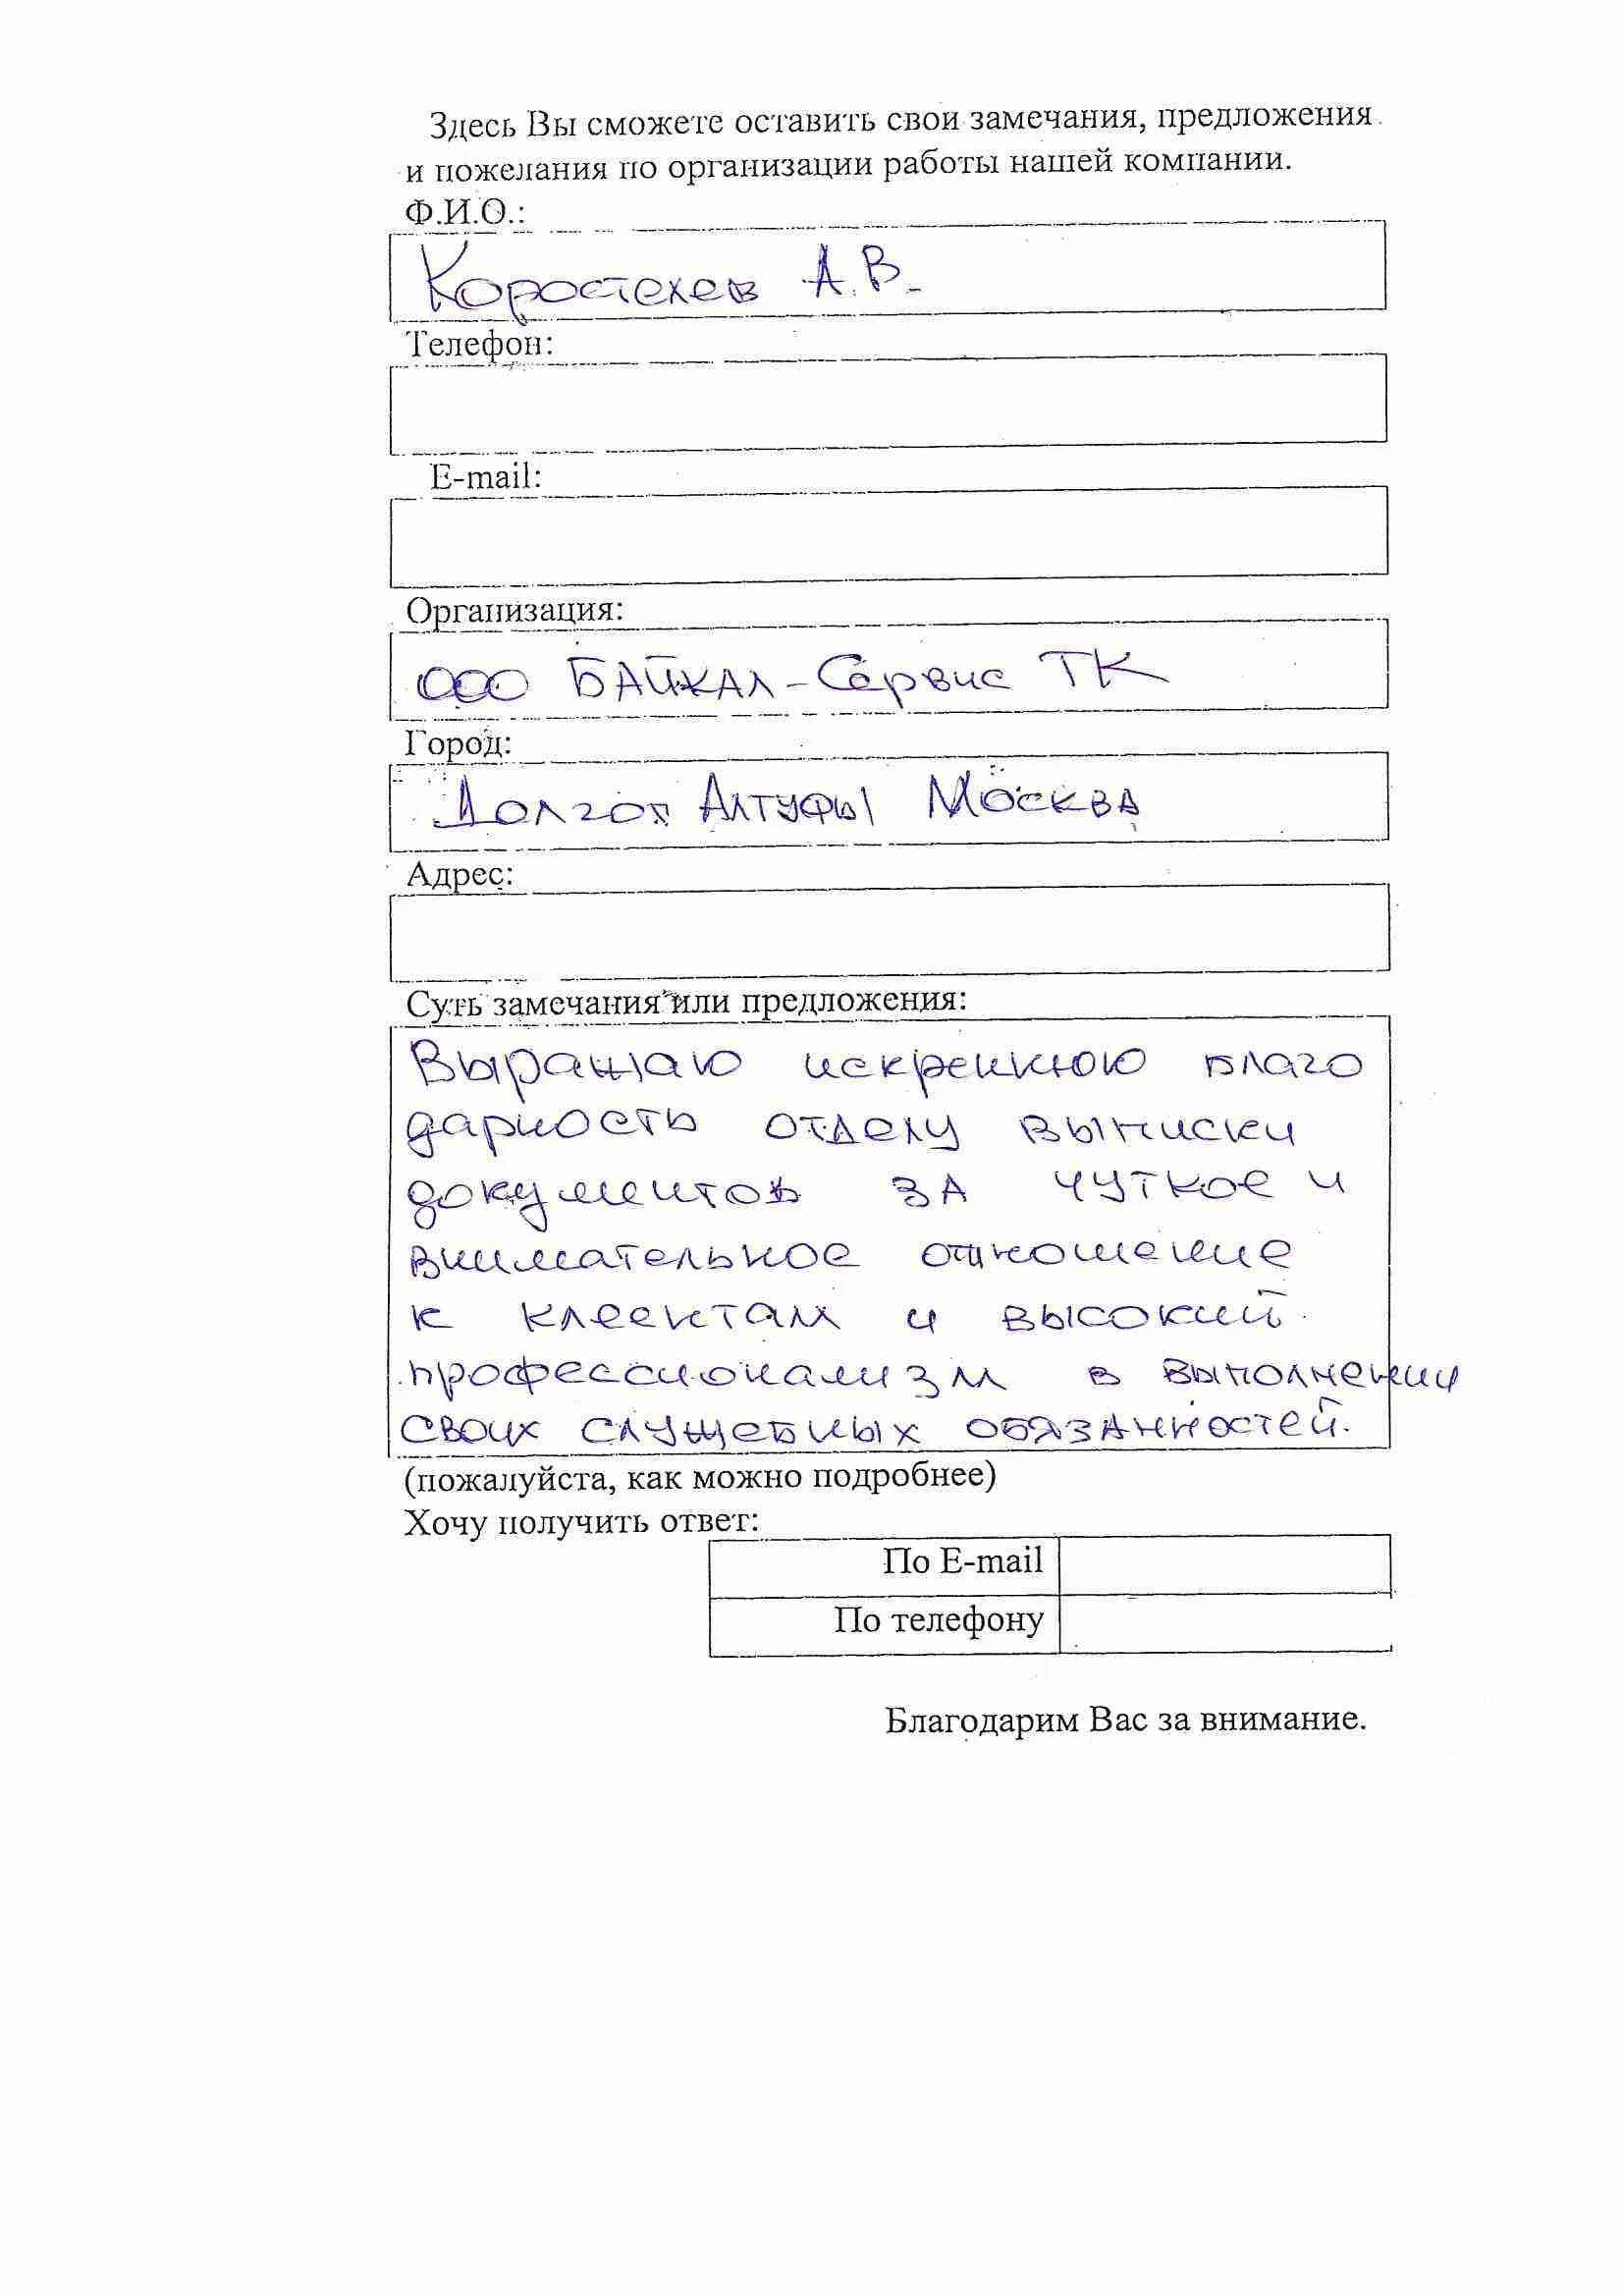 Здесь Вы сможете оставить свои замечания, предложения
и пожелания по организации работы нашей компании.
Ф.И.О.:
Коростелев А.В.
Телефон:
E-mail:
Организация:
ООО БАЙКАЛ-Сервис ТК
Город:
Москва
Адрес:
Суть замечания или предложения:
Выражаю искреннюю благо
дарность отделу выписки
документов за чуткое и
внимательное отношение
к клеентам и высокий
профессионализм в выполнении
своих служебных обязанностей.
(пожалуйста, как можно подробнее)
Хочу получить ответ:
По E-mail
По телефону
Благодарим Вас за внимание.